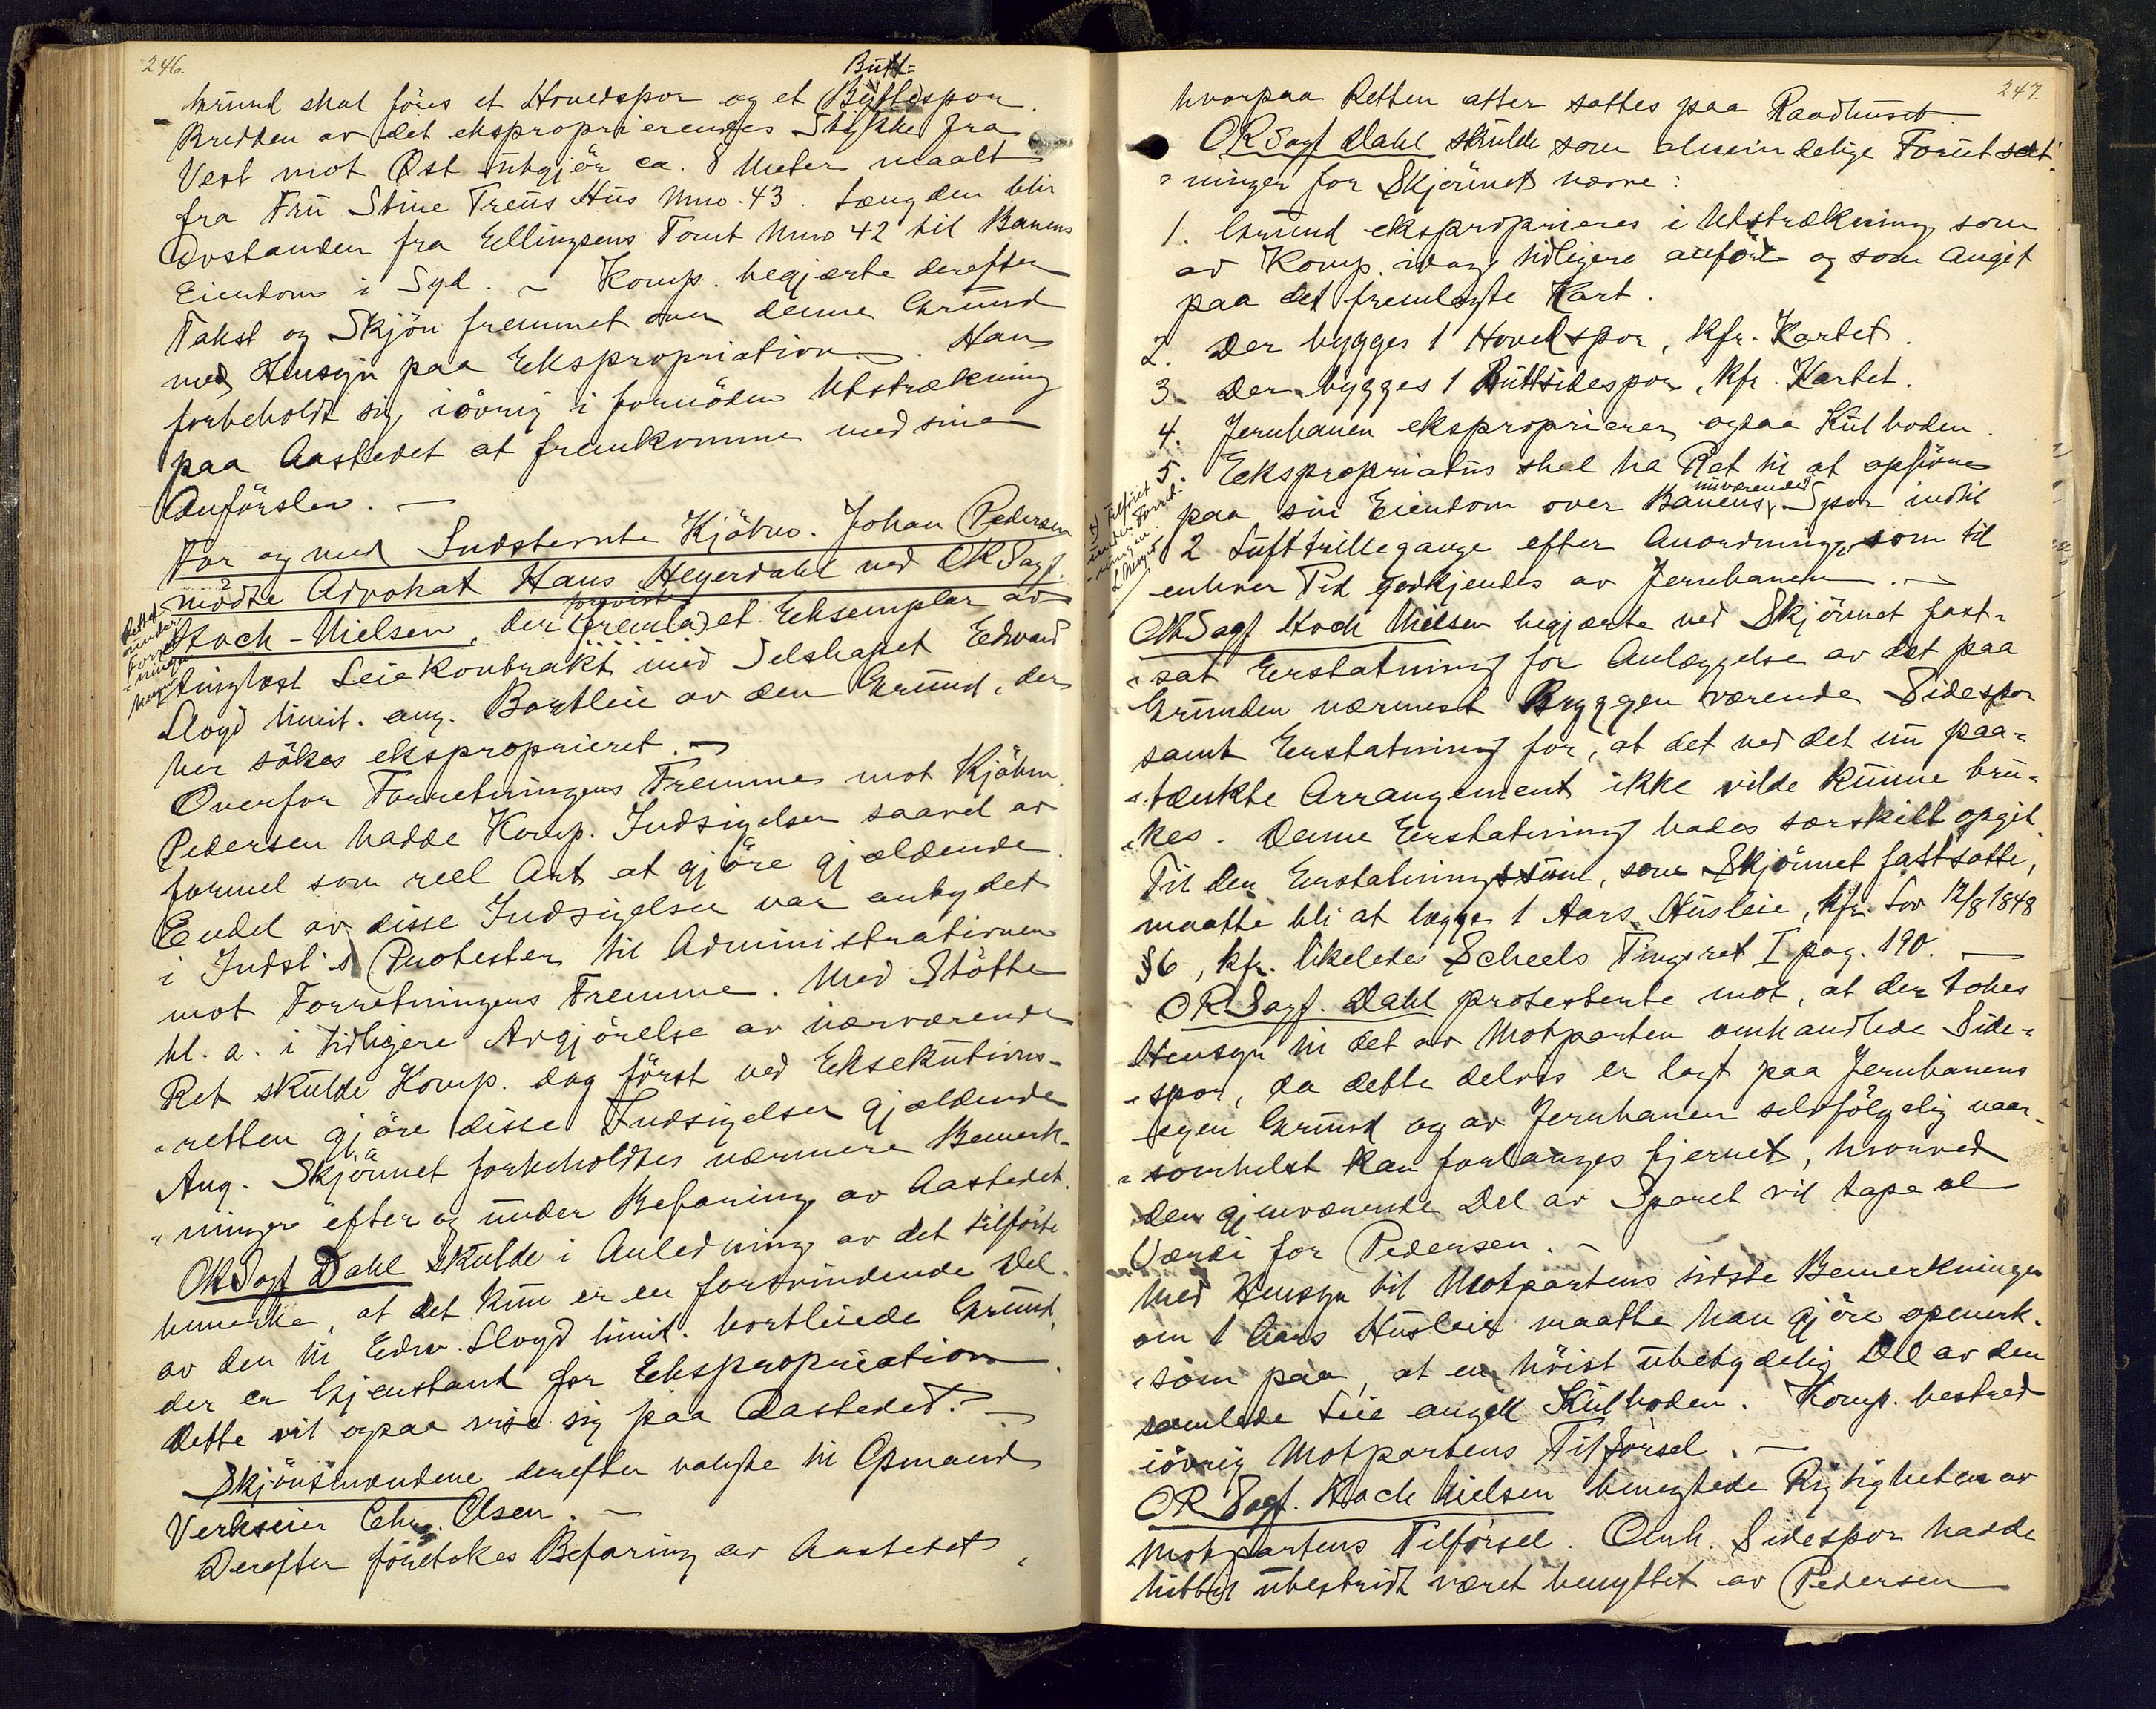 246.
Butt-
Grund skal föres et Hovedspor og et Byttespor.
Bredden av det eksproprierendes Stykke fra
Vest mot Øst utgjör ca. 8 Meter maalt
fra Fru Stine Treus Hus Mno. 43. Længden blir
Avstanden fra Ellingsens Tomt Mno 42 til Banens
Eiendom i Syd. – Komp. begjærte derefter
Takst og Skjön fremmet over denne Grund
med Hensyn paa Ekspropriation. Han
forbeholdt sig iövrig i fornöden Utstrækning
paa Aastedet at fremkomme med sine
Anförsler. —
For og med Indstevnte Kjöbm. Johan Pedersen
mödte Advokat Hans Heyerdahl ved ORSagf.
Rettet under Forretningen
foreviste
Koch-Nielsen, der (fremla) et Eksemplar av
tinglæst Leiekontrakt med Selskapet Edward
Lloyd limit. ang. Bortleie av den Grund, der
her sökes ekspropriert. —
Overfor Forretningens Fremme mot Kjöbm.
Pedersen hadde Komp. Indsigelser saavel av
formel som reel Art at gjöre gjældende.
Endel av disse Indsigelser var antydet
i Indst's Protester til Administrationen
mot Forretningens Fremme. Med Stötte
bl. a. i tidligere Avgjörelse av nærværende
Ret skulde Komp. dog först ved Eksekutions-
retten gjöre disse Indsigelser gjældende
Ang. Skjönnet forbeholdtes nærmere Bemerk-
ninger efter og under Befaring av Aastedet.
ORSagf Dahl skulde i Anledning av det tilförte
bemerke, at det kun er en forsvindende Del
av den til Edw. Lloyd limit. bortleiede Grund,
der er Gjenstand for Ekspropriation.
Dette vil ogsaa vise sig paa Aastedet. —
Skjönsmændene derefter valgte til Opmand
Verkseier Chr. Olsen. —
Derefter foretokes Befaring av Aastedet,
247.
hvorpaa Retten atter sattes paa Raadhuset.
ORSagf Dahl skulde som almindelige Forutsæt-
ninger for Skjönnet nævne:
1. Grund eksproprieres i Utstrækning som
av Komp. idag tidligere anfört og som angit
paa det fremlagte Kart.
2. Der bygges 1 Hovedspor, kfr. Kartet.
3. Der bygges 1 Buttsidespor, kfr. Kartet.
4. Jernbanen eksproprierer ogsaa Kulboden.
5. Ekspropriatus skal ha Ret til at opföre
nuværende
paa sin Eiendom over Banens Spor indtil
tilföiet under Forretningen
2 Lufttrillegange efter Anordning, som til
enhver Tid godkjendes av Jernbanen. —
ORSagf Koch Nielsen begjærte ved Skjönnet fast-
sat Erstatning for Anlæggelse av det paa
Grunden nærmest Bryggen værende Sidespor
samt Erstatning for, at det ved det nu paa-
tænkte Arrangement ikke vilde kunne bru-
kes. Denne Erstatning bades særskilt opgit.
Til den Erstatningssum, som Skjönnet fastsatte,
maatte bli at lægge 1 Aars Husleie, kfr. Lov 12/8 1848
§6, kfr. likeledes Scheels Tingsret I pag. 190. —
ORSagf. Dahl protesterte mot, at der tokes
Hensyn til det av Motparten omhandlede Side-
spor, da dette delvis er lagt paa Jernbanens
egen Grund og av Jernbanen selvfölgelig naar-
somhelst kan forlanges fjernet, hvorved
den gjenværende Del av Sporet vil tape al
Værdi for Pedersen. –
Med Hensyn til Motpartens sidste Bemerkninger
om 1 Aars Husleie maatte han gjöre opmerk-
som paa, at en höist ubetydelig Del av den
samlede Leie angik Kulboden. Komp. bestred
iövrig Motpartens Tilförsel. —
ORSagf. Koch Nielsen benegtede Rigtigheten av
Motpartens Tilförsel. Omh. Sidespor hadde
hittil ubestridt været benyttet av Pedersen